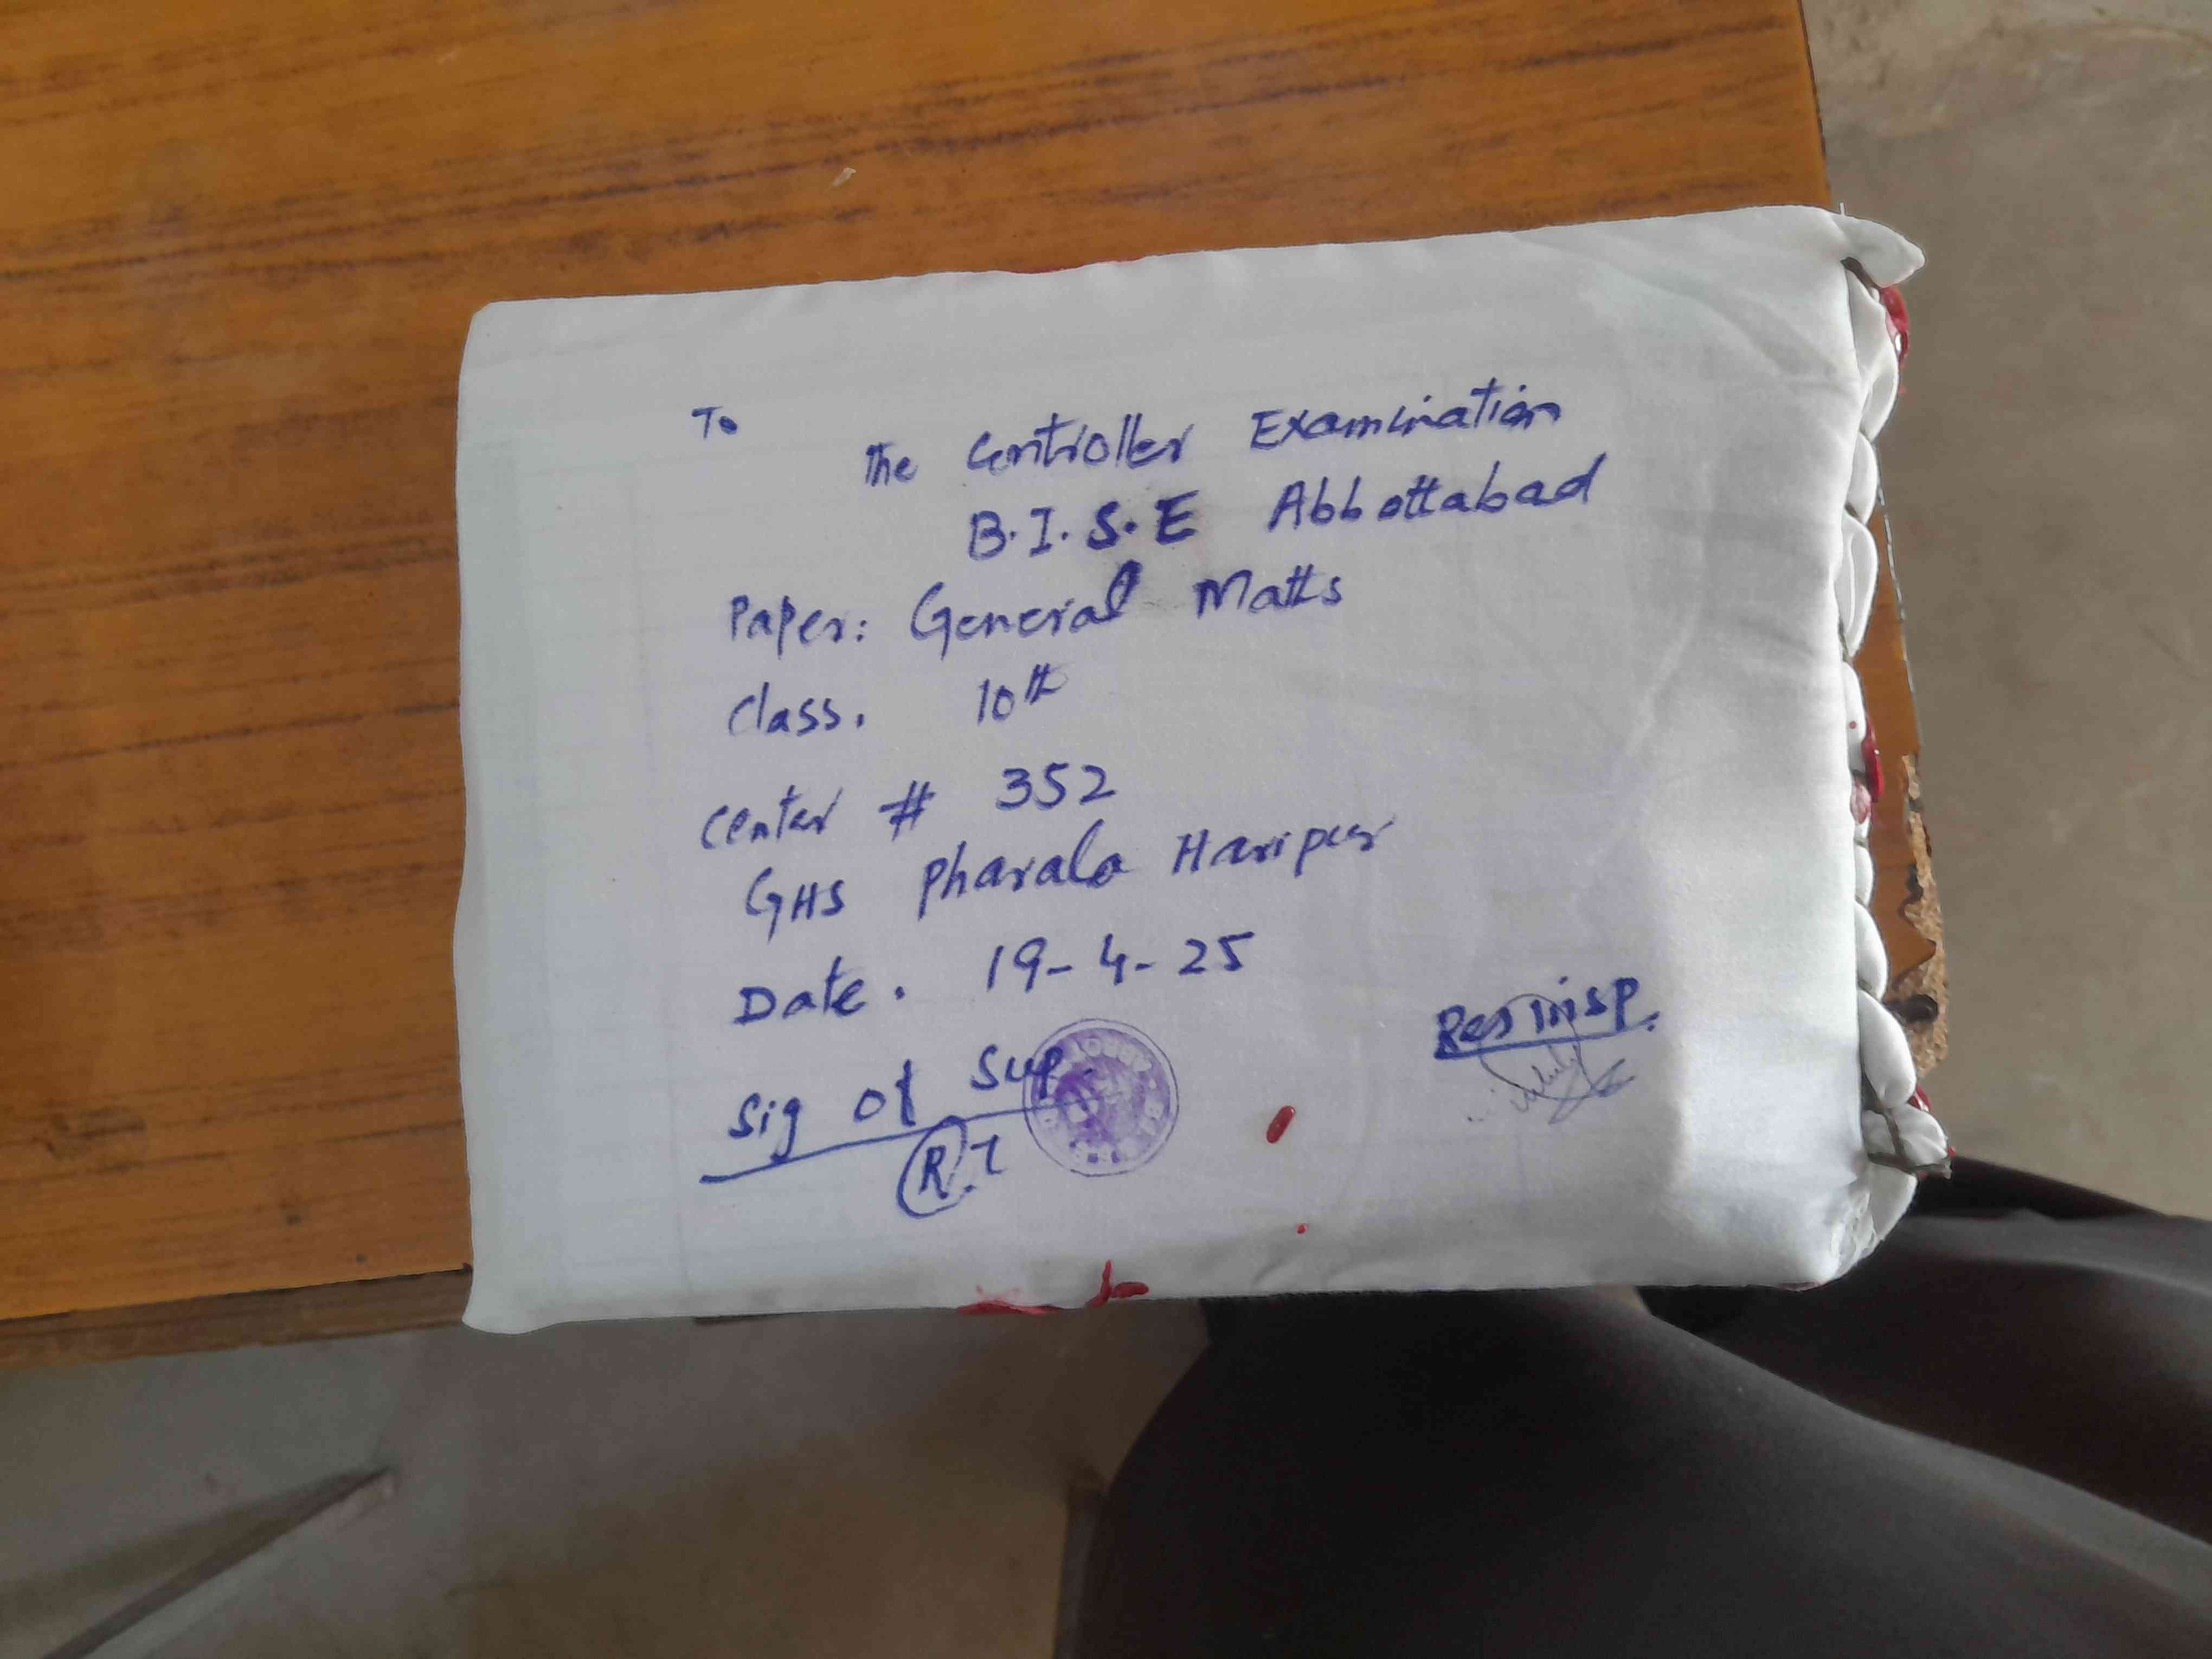 To
The Controller Examination
B.I.S.E Abbottabad
Paper: General Maths
Class. 10th
Center # 352
GHS Pharala Haripur
Date. 19-4-25
Res insp.
Sig of Sup.